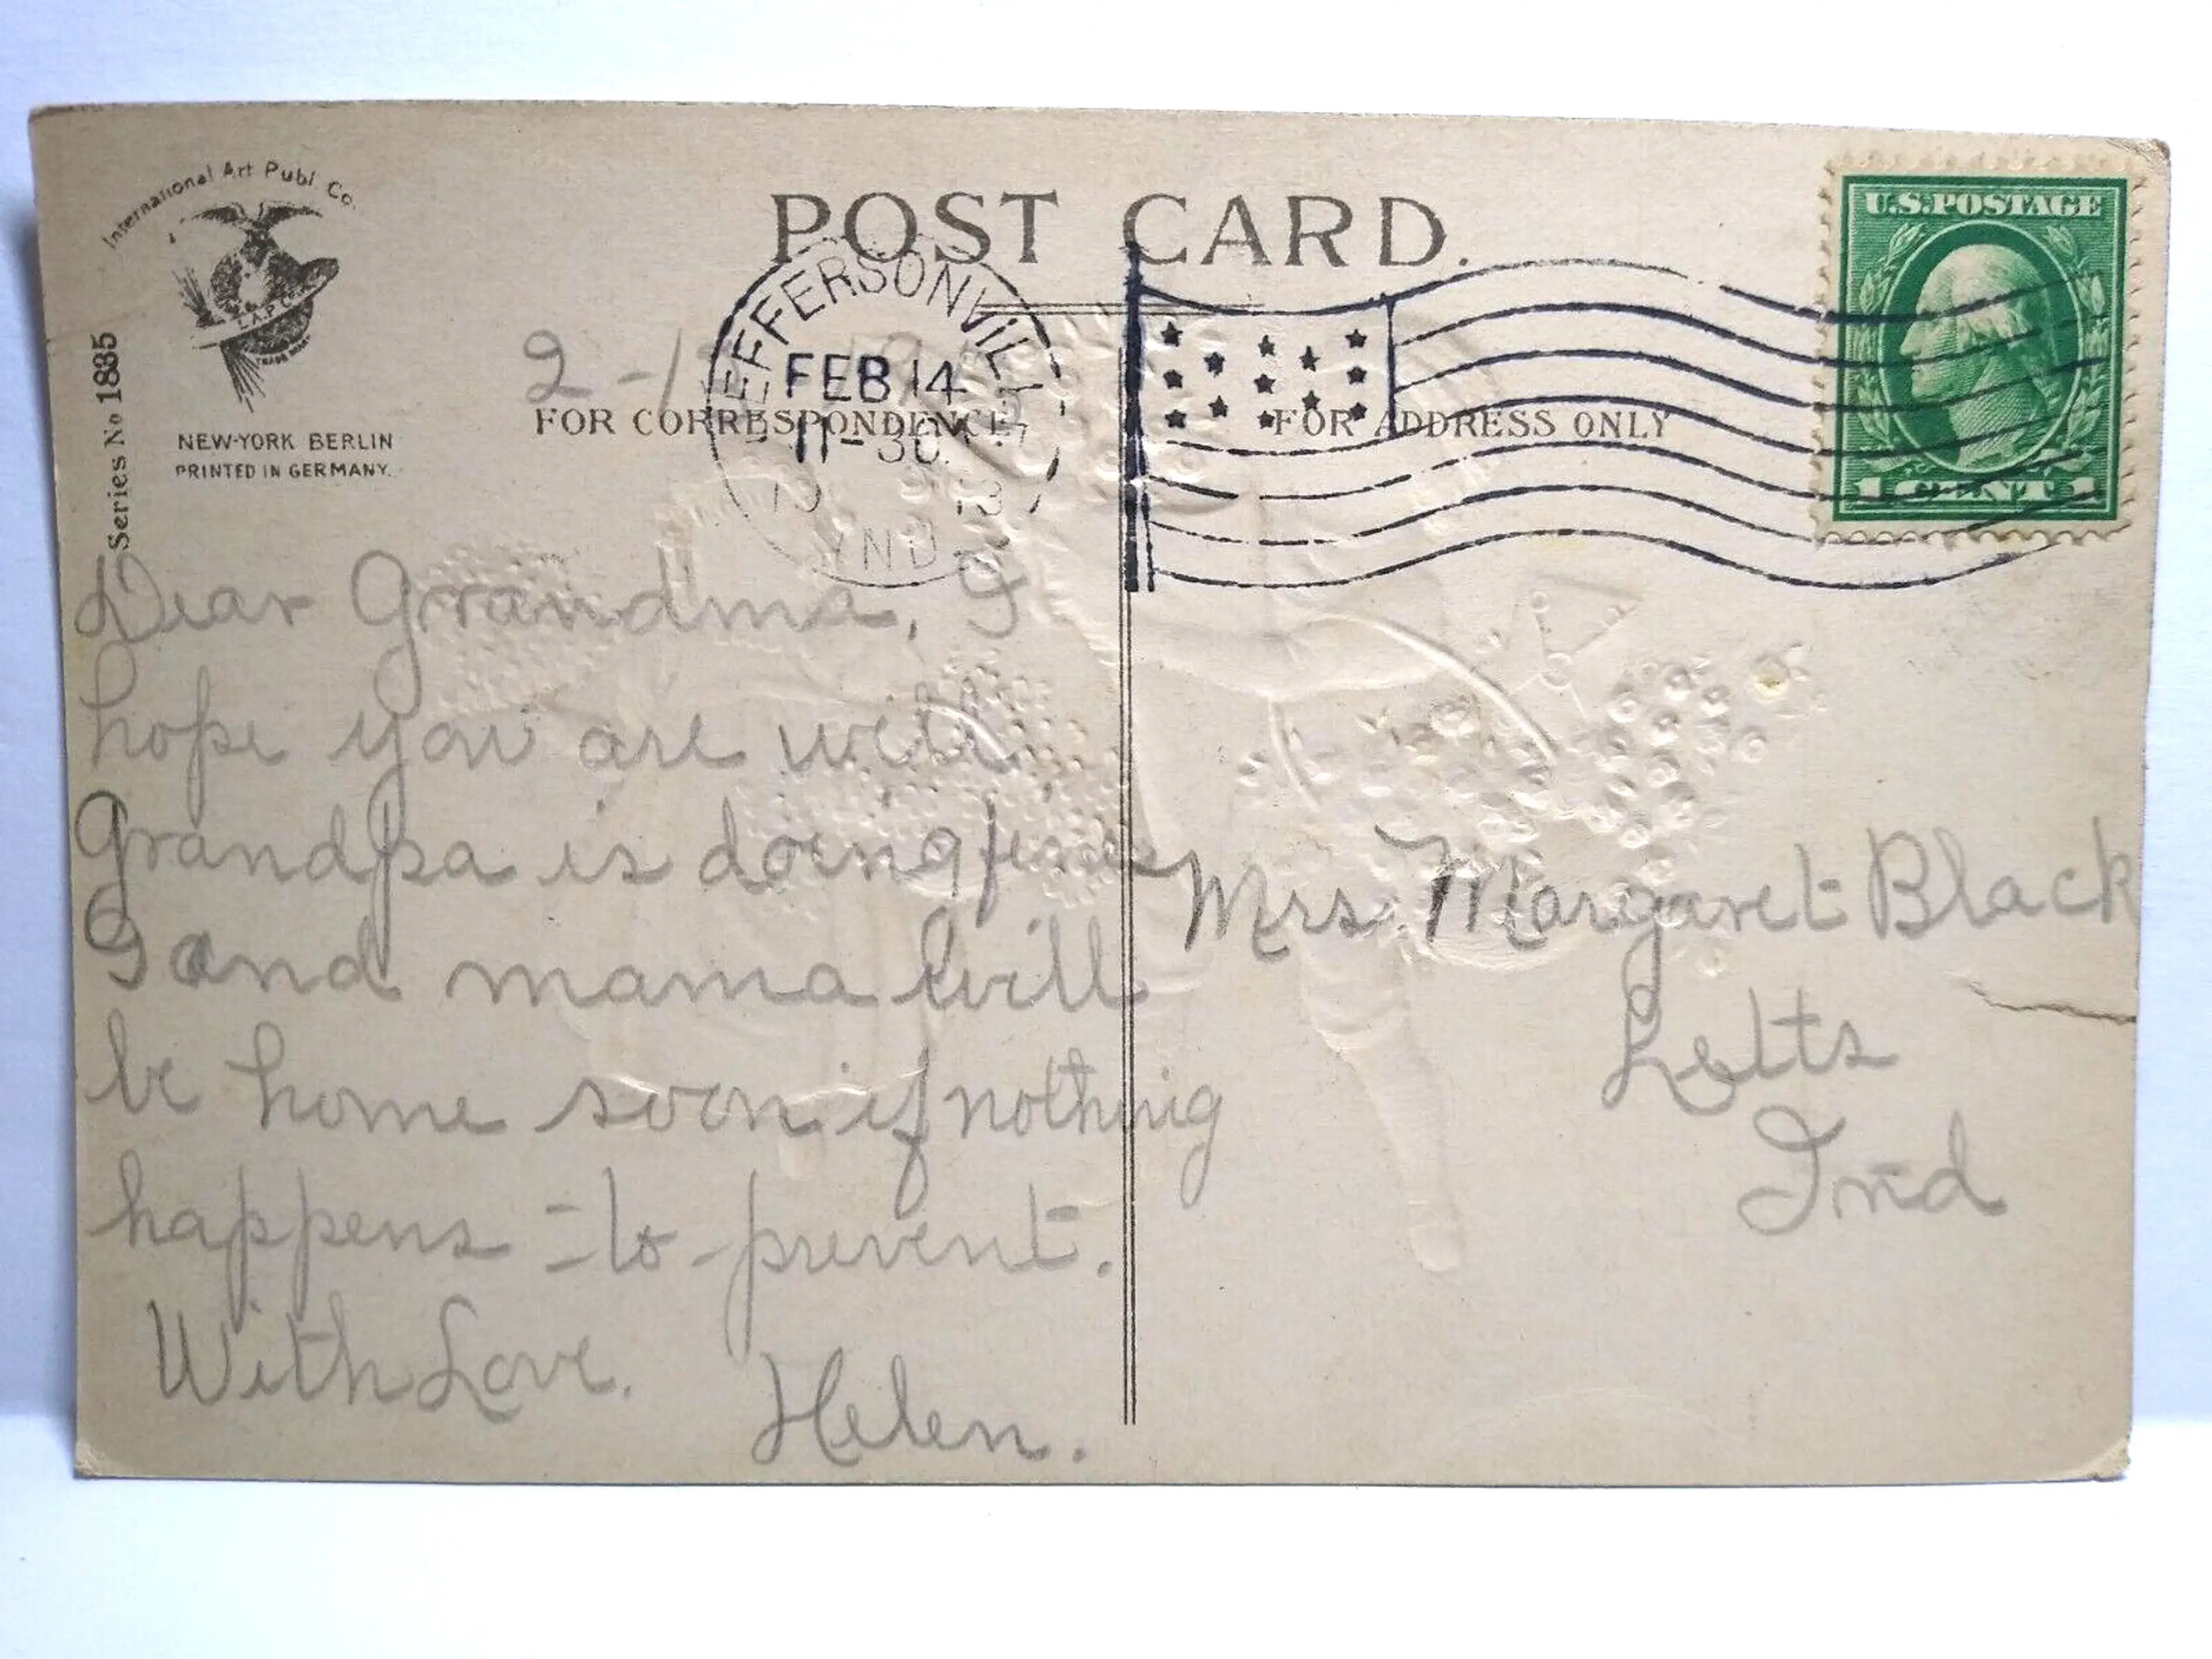 International Art Publ. Co.
I.A.P.C.
TRADE MARK
NEW-YORK BERLIN
PRINTED IN GERMANY.
Series No 1835
POST CARD.
FOR CORRESPONDENCE
FOR ADDRESS ONLY
JEFFERSONVILLE
FEB 14
11-30
1913
IND.
U.S.POSTAGE
1 CENT 1
2-1
Dear Grandma, I
hope you are well
Grandpa is doing fine
I and mama will
be home soon if nothing
happens to prevent.
With Love.
Helen.
Mrs. Margaret Black
Letts
Ind